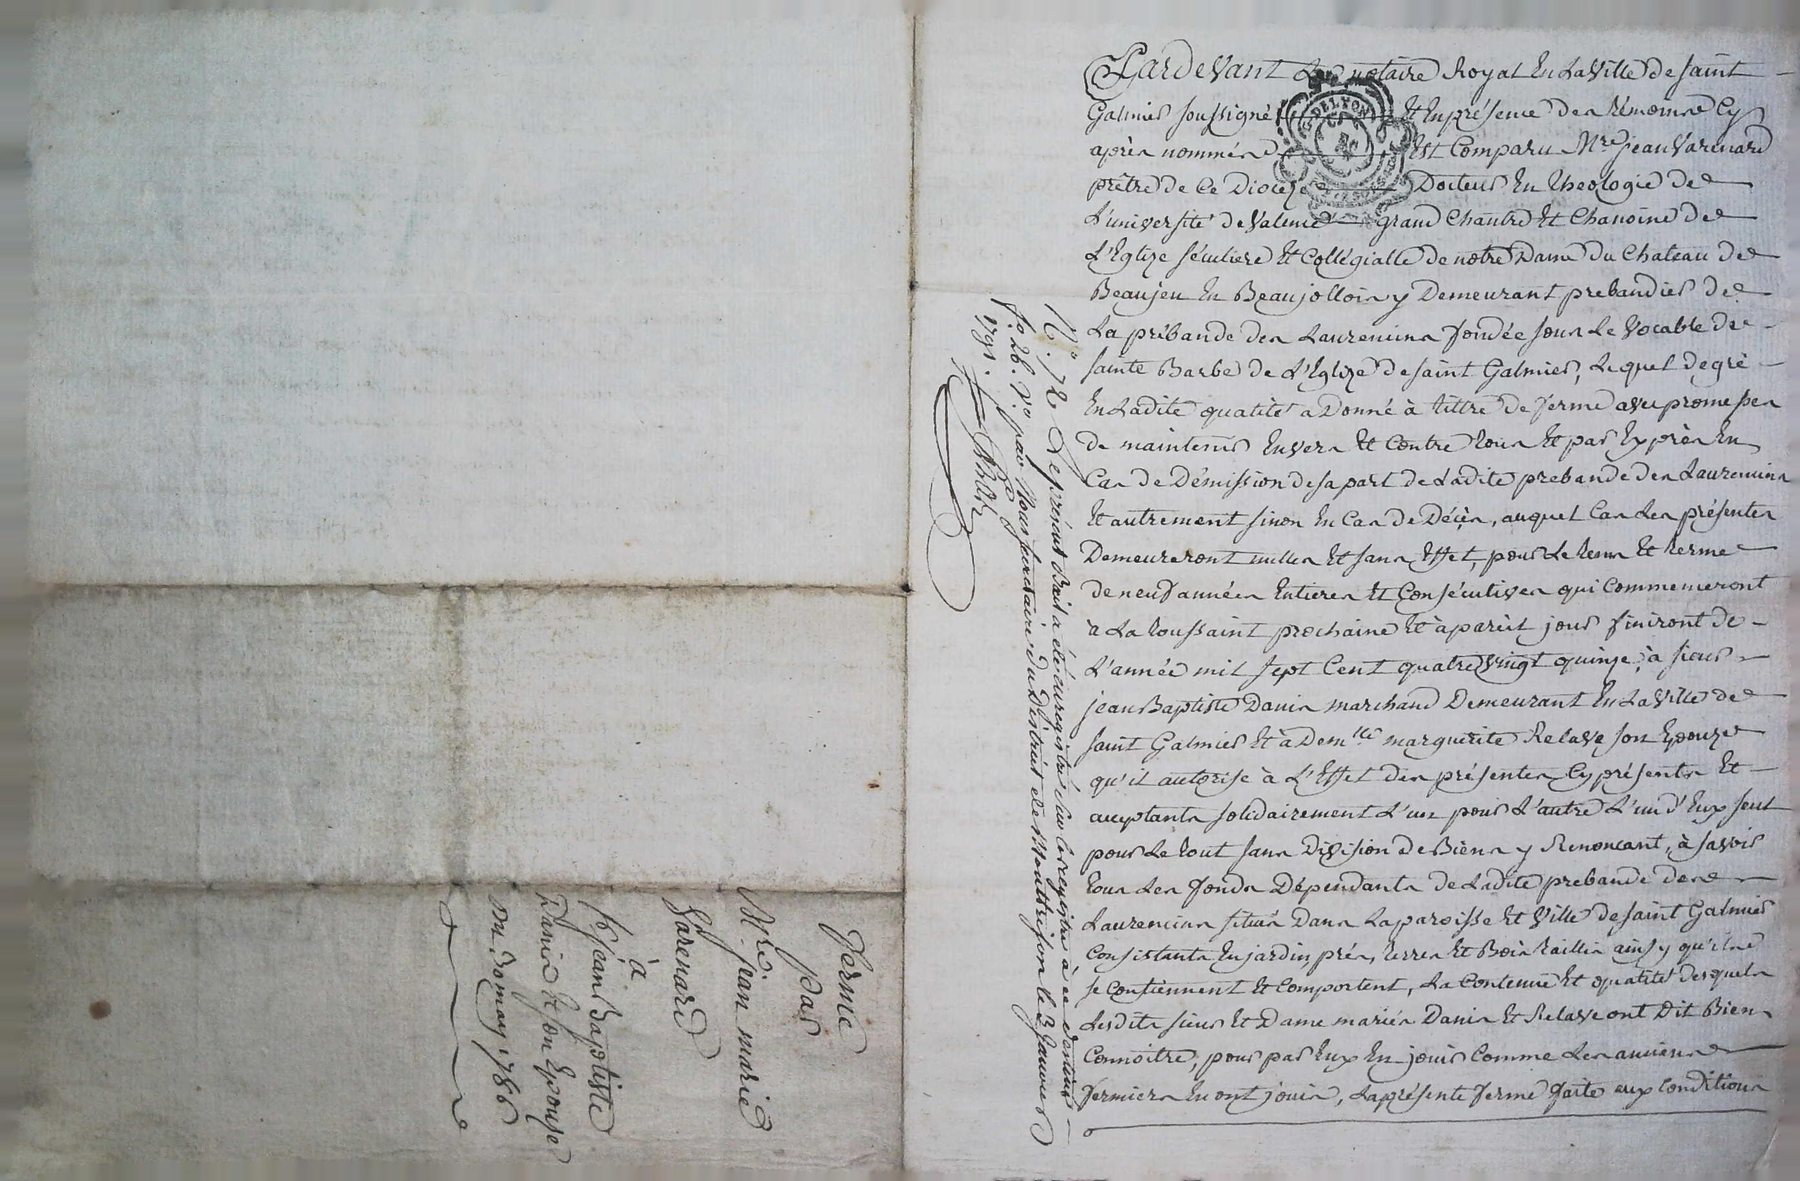 Pardevant Le notaire Royal En La Ville de saint
Galmier soussigné Et En présence des témoins Cy
après nommés Est Comparu Mre jean Varenard
prêtre de Ce Diocèze Docteur En theologie de
L'université de Valence grand Chantre Et Chanoine de
L'Eglize séculiere Et Collégialle de notre Dame du Chateau de
Beaujeu En Beaujollois y Demeurant prebandier de
La prébande des Laurencins fondée sous Le Vocable de
sainte Barbe de L'Eglize de saint Galmier, Lequel de gré
En Ladite qualité a Donné à tittre de ferme avec promesses
de maintenir Envers Et Contre tous Et par Exprès En
Cas de Démission de sa part de Ladite prebande des Laurencins
Et autrement sinon En Cas de Décès, auquel Cas Les présentes
Demeureront nulles Et sans Effet, pour Le tems Et terme
de neuf années Entieres Et Consécutives qui Commenceront
a La toussaint prochaine Et à pareil jour finiront de
L'année mil sept Cent quatre Vingt quinze, à sieur
jean Baptiste Danis marchand Demeurant En La Ville de
saint Galmier Et à Demlle marguerite Relave son Epouze
qu'il autorise à L'Effet des présentes Cy présents Et
acceptants solidairement L'un pour L'autre L'un d'Eux seul
pour Le tout sans Division de Biens y Renoncant, à savoir
tous Les fonds Dépendants de Ladite prebande des
Laurencins situés Dans La paroisse Et Ville de saint Galmier
Consistants En jardin, prés, terres Et Bois taillis ainsy qu'ils
se Contiennent Et Comportent, La Contenue Et qualité desquels
Lesdits sieur Et Dame mariés Danis Et Relave ont Dit Bien
Connoitre, pour par Eux En jouir Comme Les anciens
fermiers En ont jouis, La présente ferme faite aux Conditions
No. 72 Le présent Bail a été enregistré sur le registre à ce destiné
fo. 26. Vo. par Nous secrétaire du District de Montbrison le 3 Janvier
1791.
Ferme
par
Mre. jean marie
Varenard
à
Sr. jean Baptiste
Danis Et son Epouse
Du 30 may 1786